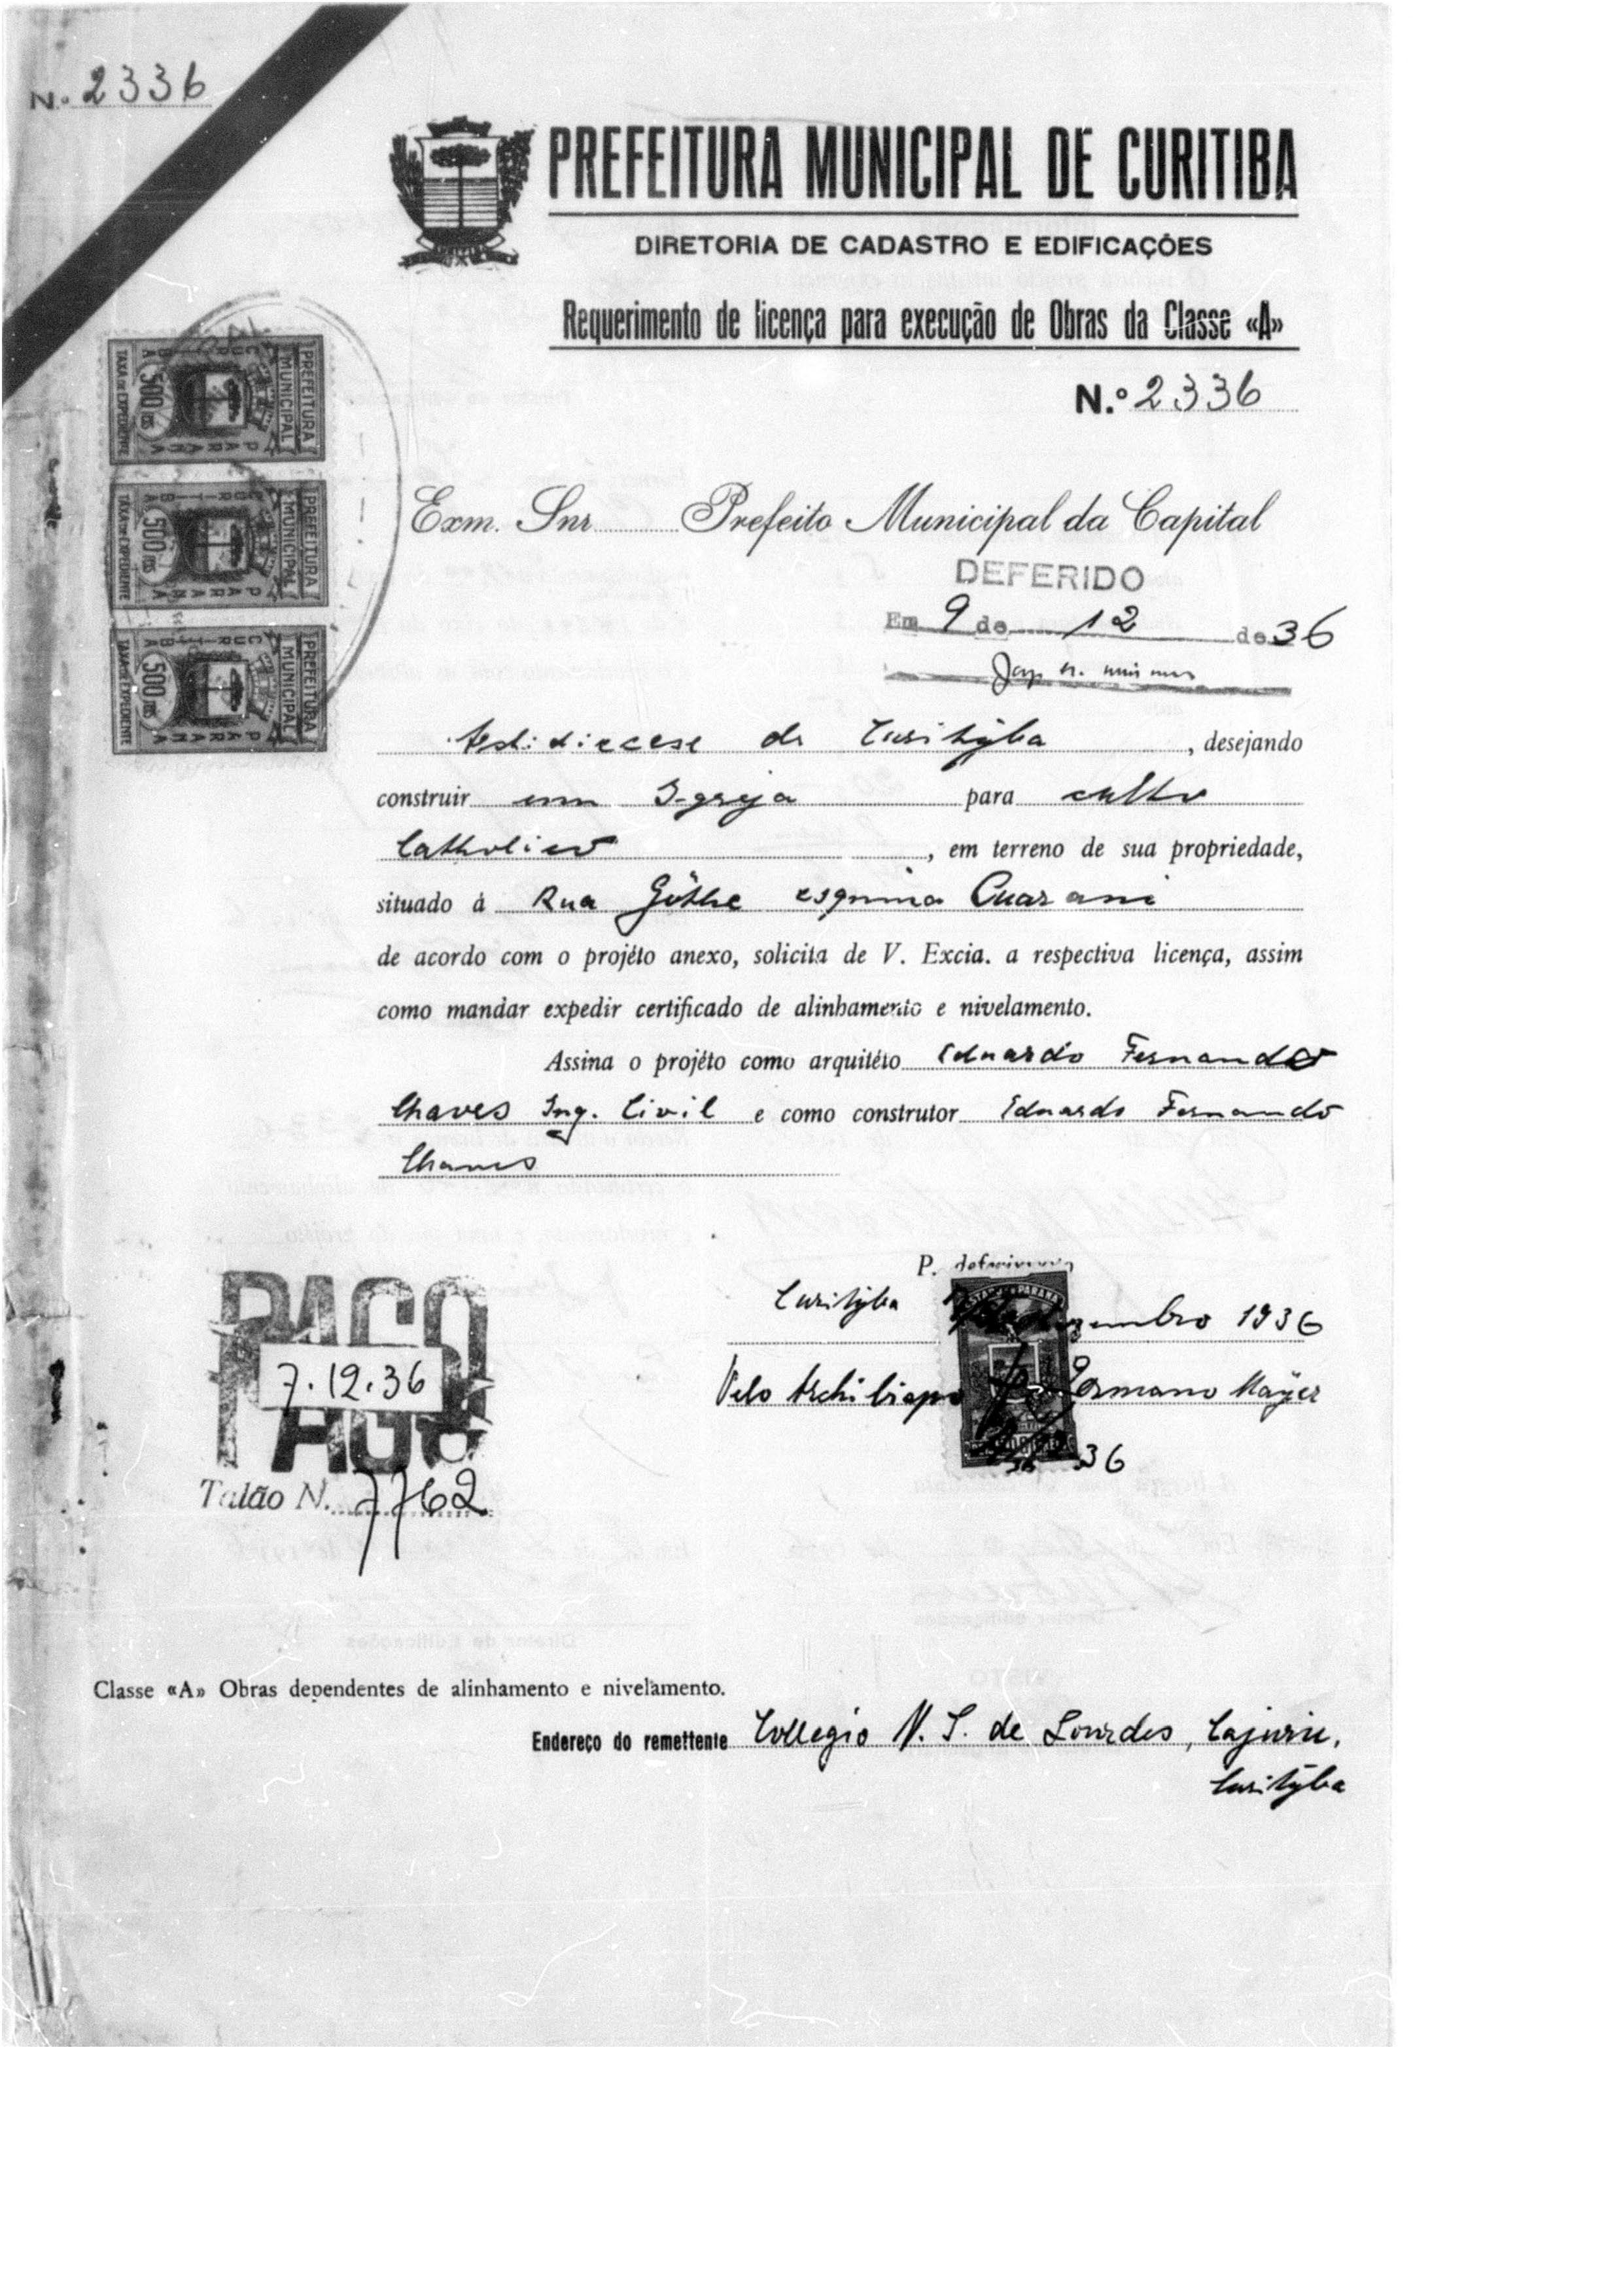 N.o 2336
PREFEITURA MUNICIPAL DE CURITIBA
DIRETORIA DE CADASTRO E EDIFICAÇÕES
Requerimento de licença para execução de Obras da Classe «A»
N.º 2336
PREFEITURA MUNICIPAL CURITIBA PARANÁ 500 RS TAXA DE EXPEDIENTE
PREFEITURA MUNICIPAL CURITIBA PARANÁ 500 RS TAXA DE EXPEDIENTE
PREFEITURA MUNICIPAL CURITIBA PARANÁ 500 RS TAXA DE EXPEDIENTE
Exm. Snr. Prefeito Municipal da Capital
DEFERIDO
Em 9 de 12 de 36
de Curitÿba, desejando
construir um Igreja para culto
Catholico, em terreno de sua propriedade,
situado á Rua Göthe esquina Guarani
de acordo com o projéto anexo, solicita de V. Excia. a respectiva licença, assim
como mandar expedir certificado de alinhamento e nivelamento.
Assina o projéto como arquitéto Eduardo Fernando
Chaves Ing. Civil e como construtor Eduardo Fernando
Chaves
P. deferimento
Curitÿba 1936
PAGO
7.12.36
PAGO
Pelo Germano Maÿer
36
Talão N. 7762
Classe «A» Obras dependentes de alinhamento e nivelamento.
Endereço do remettente Collegio N. S. de Lourdes, Cajuru,
Curitÿba